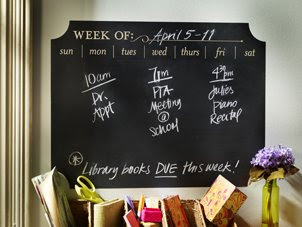 WEEK OF: April 5-11
SUN MON TUES WED THURS FRI SAT
10am
Dr.
Appt
7pm
PTA
Meeting
@
School
4:30 pm
Julie's
Piano
Recital
* Library books DUE this week!